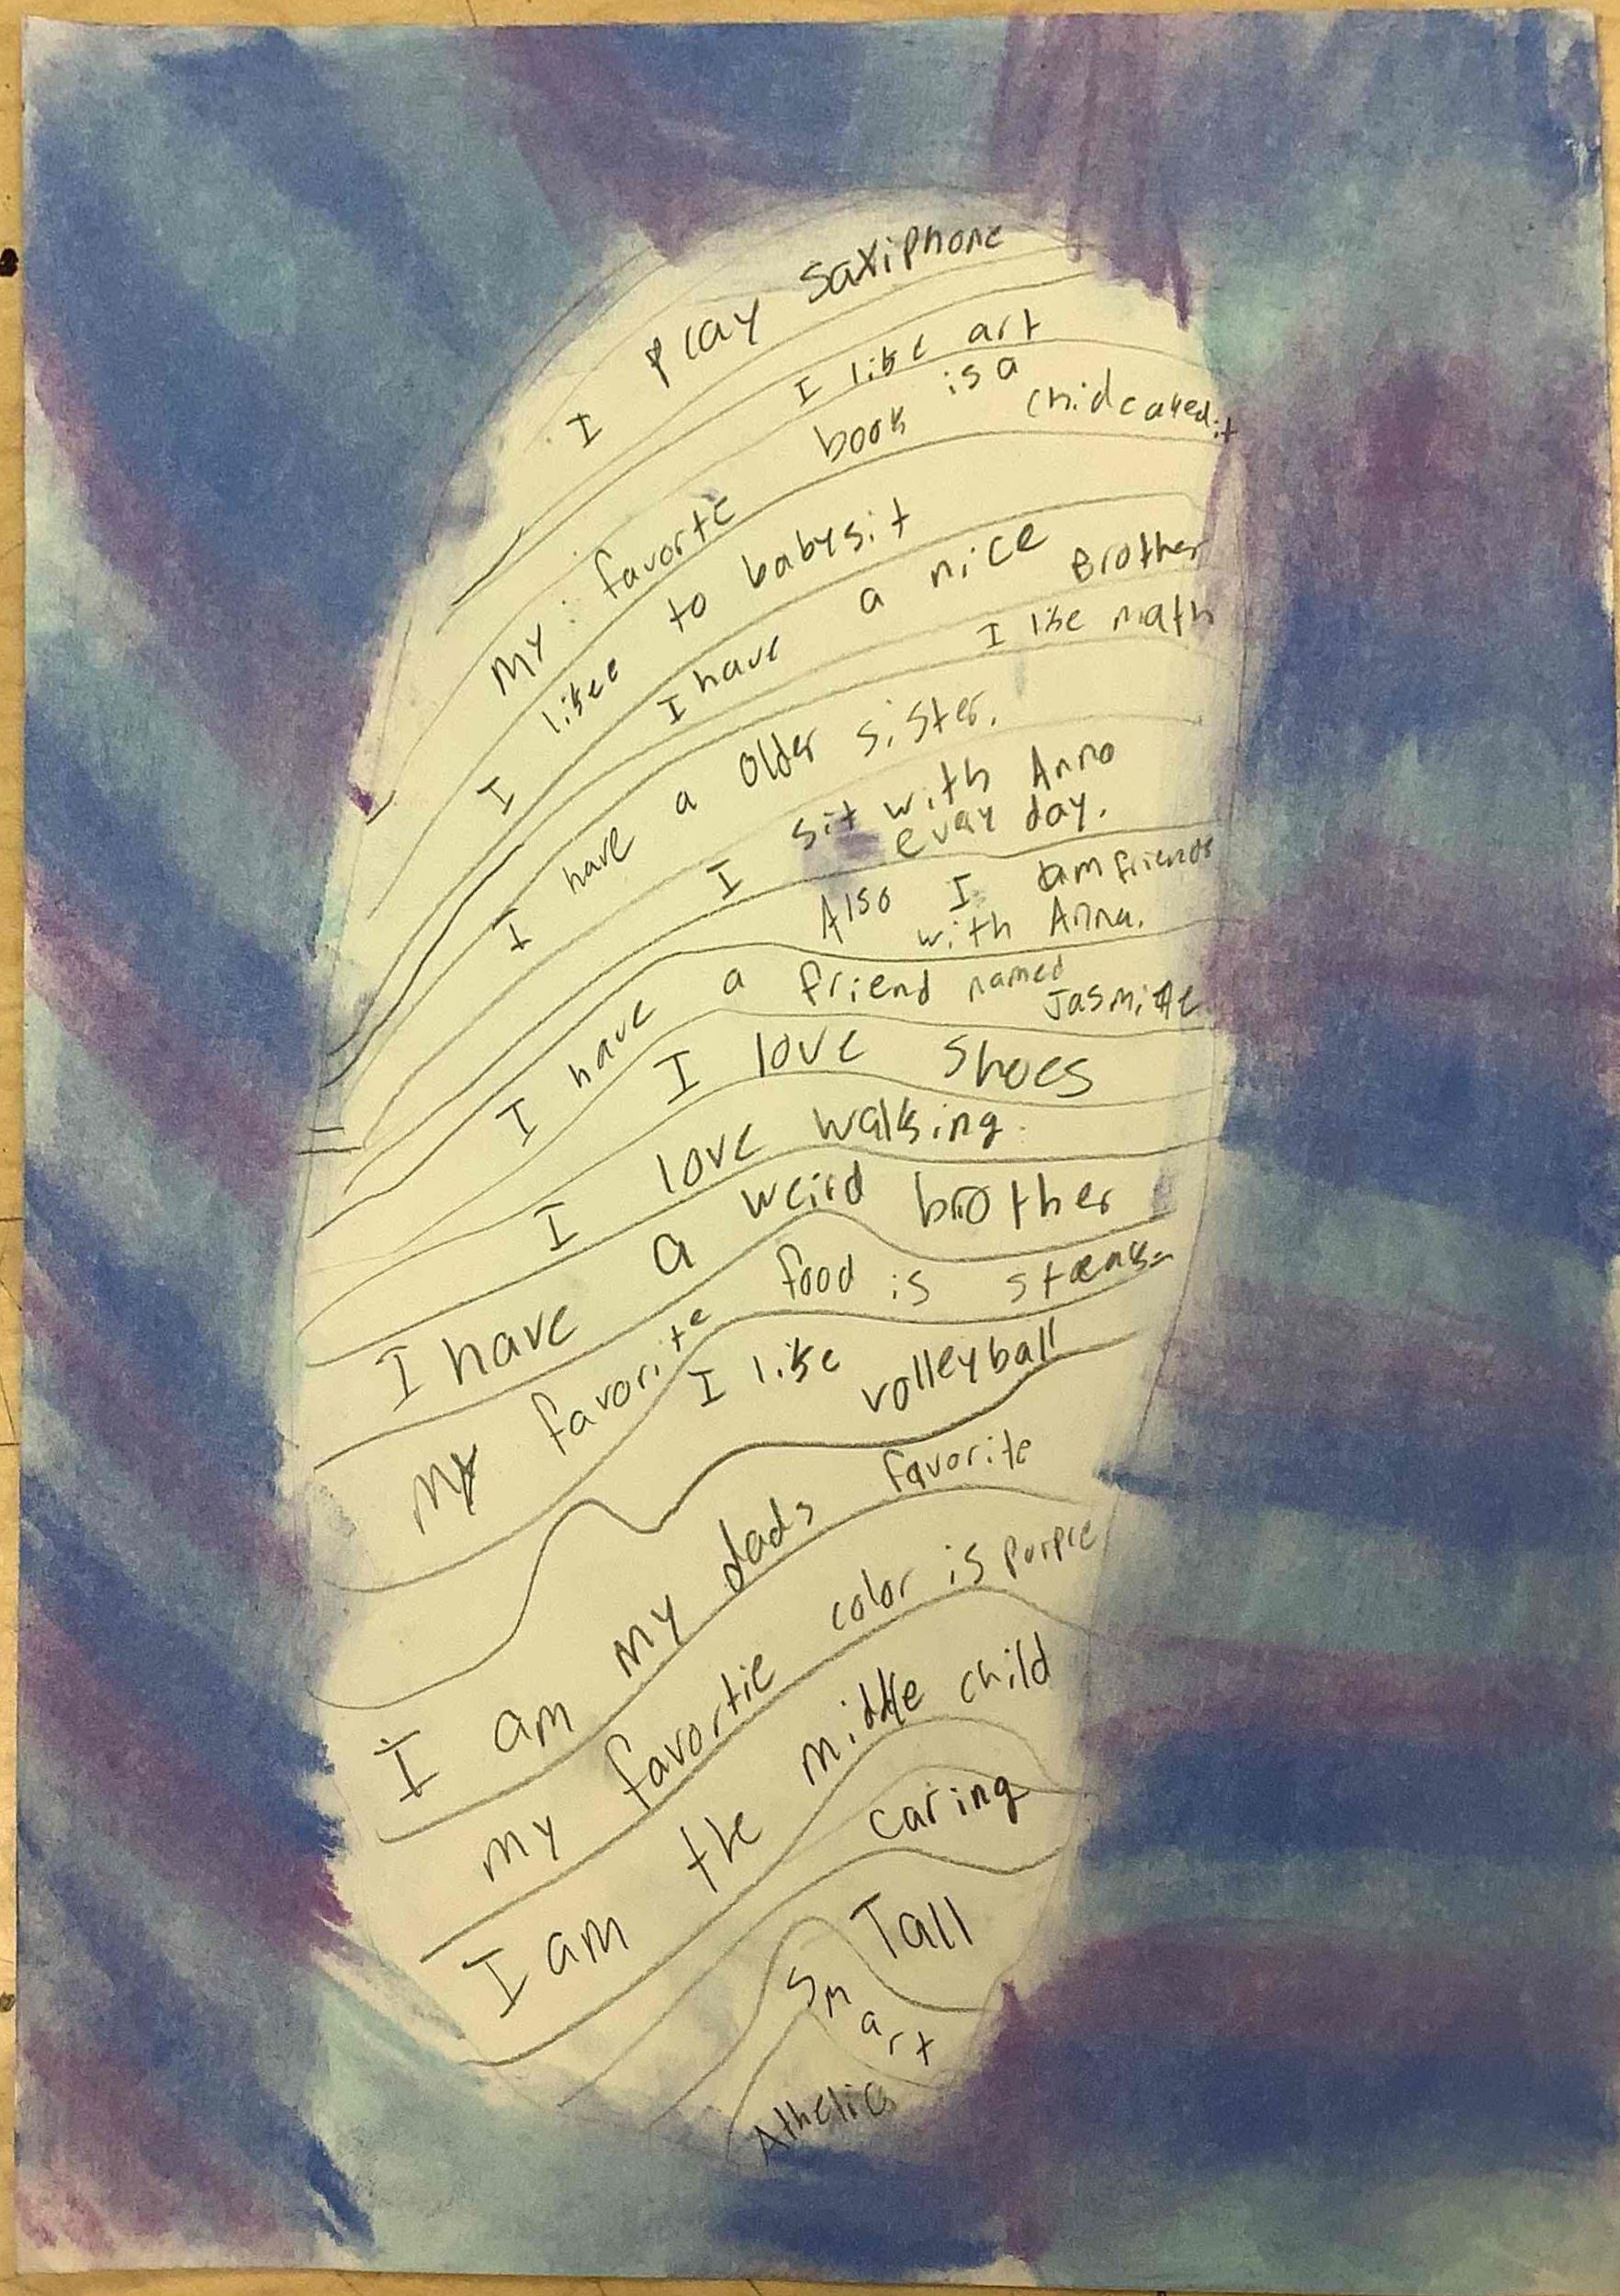 I play saxiphone
I like art
My favorte book is a
I likee to babysit
I have a nice Brother
I like math
I have a older sister.
I sit with Anna
evray day.
Also I am friends
with Anna.
I have a friend named
Jasmine
I love shoes
I love walking
I have a weird brother
My favorite food is steak
I like volleyball
I am my dads favorite
My favortie color is purple
I am the middle child
caring
Tall
Smart
Athelic